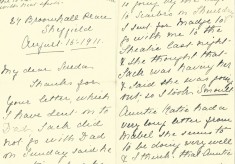 27 Broomhall Place
Sheffield
August 15 - 1911.
My dear
Thanks for
your letter which
I have sent on to
Dad, Jack did
not go with Dad
on Sunday said he
to
I sent for Madge to
go with me to the
Theatre last night
& she thought that
Jack was having her
& said she was
out so I took
Auntie Katie had a
letter from
Mabel she seems to
to be doing very well
& I think that Auntie